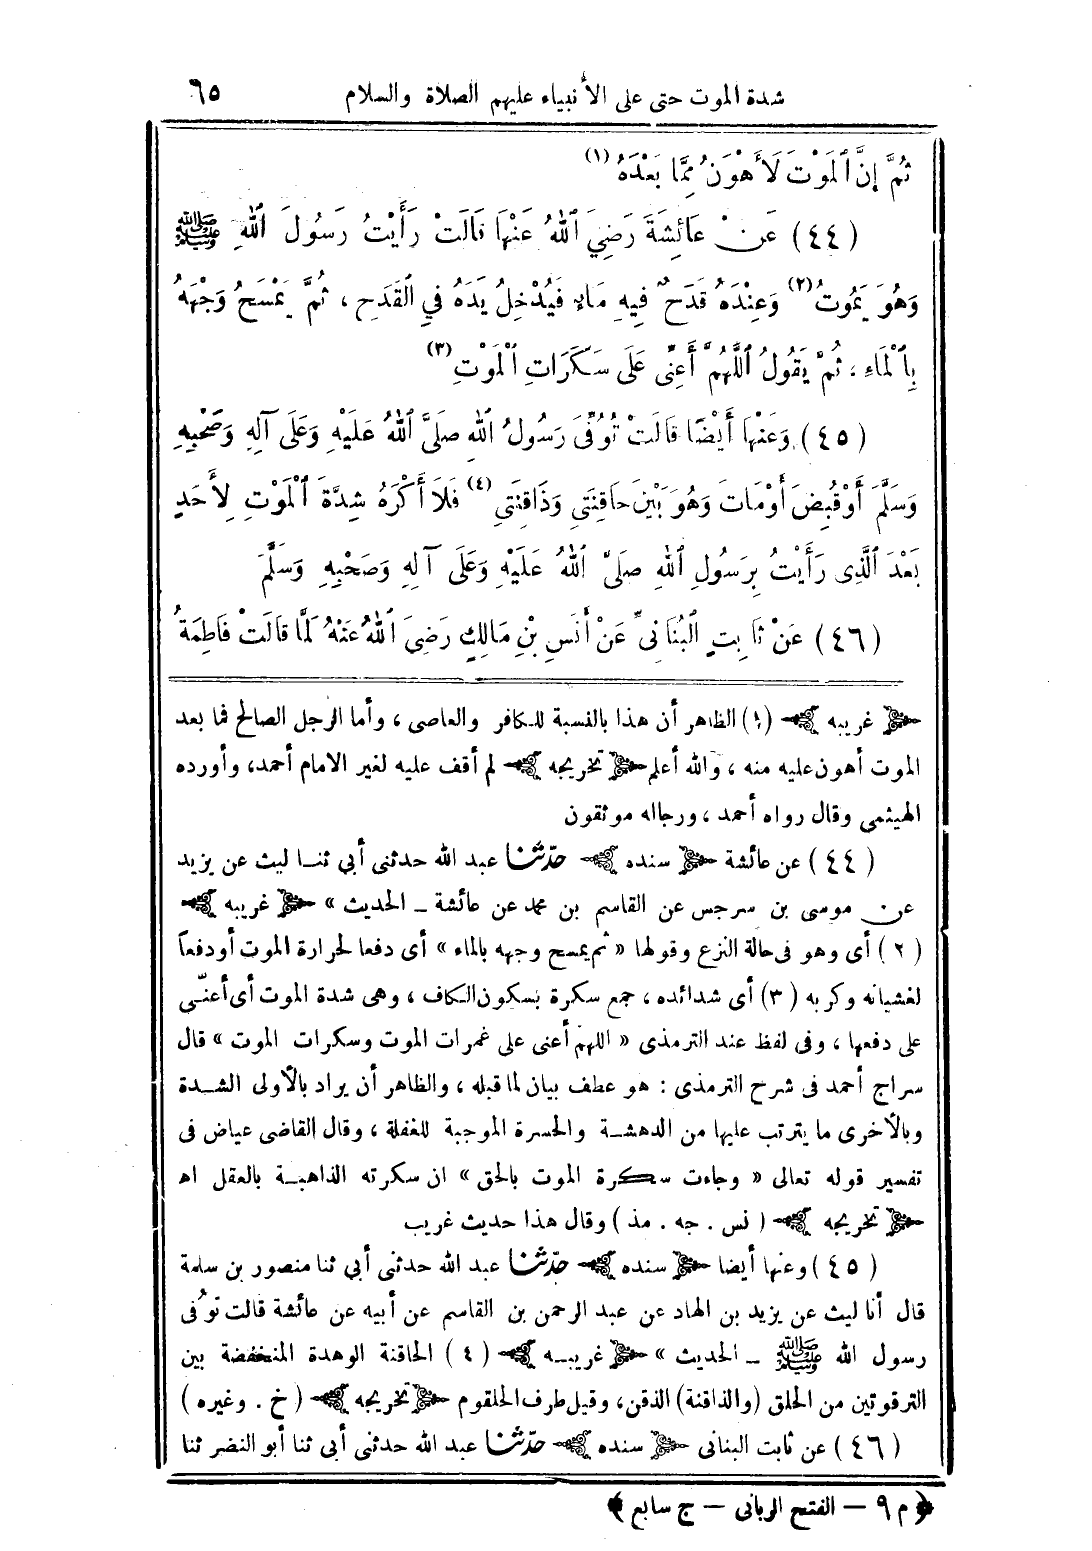 شدة الموت حتى على الأنبياء عليهم الصلاة والسلام ٦٥
ثُمَّ إِنَّ ٱلْمَوْتَ لَأَهْوَنُ مِمَّا بَعْدَهُ (١)
(٤٤) عَنْ عَائِشَةَ رَضِيَ ٱللهُ عَنْهَا قَالَتْ رَأَيْتُ رَسُولَ ٱللهِ ﷺ
وَهُوَ يَمُوتُ (٢) وَعِنْدَهُ قَدَحٌ فِيهِ مَاءٌ فَيُدْخِلُ يَدَهُ فِي الْقَدَحِ ، ثُمَّ يَمْسَحُ وَجْهَهُ
بِٱلْمَاءِ ، ثُمَّ يَقُولُ ٱللَّهُمَّ أَعِنِّى عَلَى سَكَرَاتِ ٱلْمَوْتِ (٣)
(٤٥) وَعَنْهَا أَيْضًا قَالَتْ تُوُفِّىَ رَسُولُ ٱللهِ صَلَّى ٱللهُ عَلَيْهِ وَعَلَى آلِهِ وَصَحْبِهِ
وَسَلَّمَ أَوْ قُبِضَ أَوْ مَاتَ وَهُوَ بَيْنَ حَاقِنَتِي وَذَاقِنَتِي (٤) فَلَا أَكْرَهُ شِدَّةَ ٱلْمَوْتِ لِأَحَدٍ
بَعْدَ ٱلَّذِى رَأَيْتُ بِرَسُولِ ٱللهِ صَلَّى ٱللهُ عَلَيْهِ وَعَلَى آلِهِ وَصَحْبِهِ وَسَلَّمَ
(٤٦) عَنْ ثَابِتٍ الْبُنَانِىِّ عَنْ أَنَسِ بْنِ مَالِكٍ رَضِيَ ٱللهُ عَنْهُ لَمَّا قَالَتْ فَاطِمَةُ
﴿ غريبه ﴾ (١) الظاهر أن هذا بالنسبة للكافر والعاصى ، وأما الرجل الصالح فما بعد
الموت أهون عليه منه ، والله أعلم ﴿ تخريجه ﴾ لم أقف عليه لغير الامام أحمد، وأورده
الهيثمى وقال رواه أحمد ، ورجاله موثقون
(٤٤) عن عائشة ﴿ سنده ﴾ حدّثنا عبد الله حدثنى أبي ثنا ليث عن يزيد
عن موسى بن سرجس عن القاسم بن محمد عن عائشة ــ الحديث » ﴿ غريبه ﴾
(٢) أى وهو فى حالة النزع وقولها « ثم يمسح وجهه بالماء » أى دفعا لحرارة الموت أو دفعاً
لغشيانه وكربه (٣) أى شدائده ، جمع سكرة بسكون الكاف ، وهى شدة الموت أى أعنّى
على دفعها ، وفى لفظ عند الترمذى « اللهم أعنى على غمرات الموت وسكرات الموت » قال
سراج أحمد فى شرح الترمذى : هو عطف بيان لما قبله ، والظاهر أن يراد بالأولى الشدة
وبالأخرى ما يترتب عليها من الدهشة والحسرة الموجبة للغفلة ، وقال القاضى عياض فى
تفسير قوله تعالى « وجاءت سكرة الموت بالحق » ان سكرته الذاهبة بالعقل اه
﴿ تخريجه ﴾ (نس . جه . مذ) وقال هذا حديث غريب
(٤٥) وعنها أيضا ﴿ سنده ﴾ حدّثنا عبد الله حدثنى أبي ثنا منصور بن سلمة
قال أنا ليث عن يزيد بن الهاد عن عبد الرحمن بن القاسم عن أبيه عن عائشة قالت توُفى
رسول الله ﷺ ــ الحديث » ﴿ غريبه ﴾ (٤) الحاقنة الوهدة المنخفضة بين
الترقوتين من الحلق (والذاقنة) الذقن، وقيل طرف الحلقوم ﴿ تخريجه ﴾ (خ . وغيره)
(٤٦) عن ثابت البنانى ﴿ سنده ﴾ حدّثنا عبد الله حدثنى أبي ثنا أبو النضر ثنا
﴿ م ٩ — الفتح الربانى — ج سابع ﴾